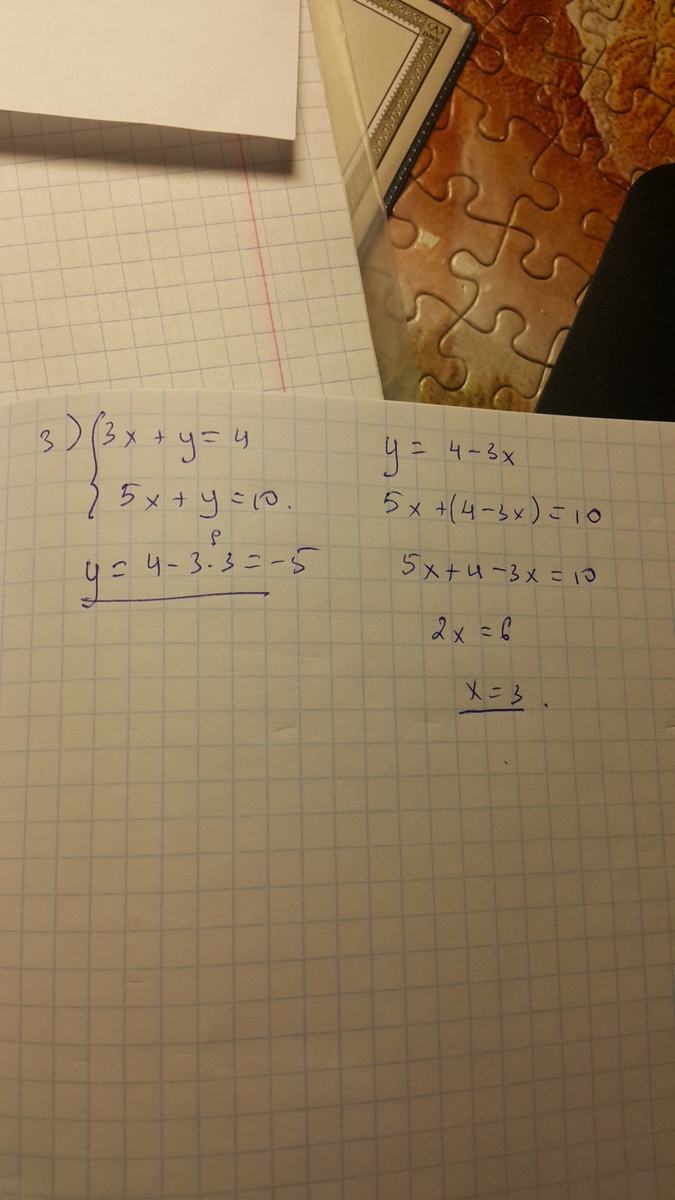 3) { 3x + y = 4
5x + y = 10.
y = 4 - 3 · 3 = -5
y = 4 - 3x
5x + (4 - 3x) = 10
5x + 4 - 3x = 10
2x = 6
x = 3 .